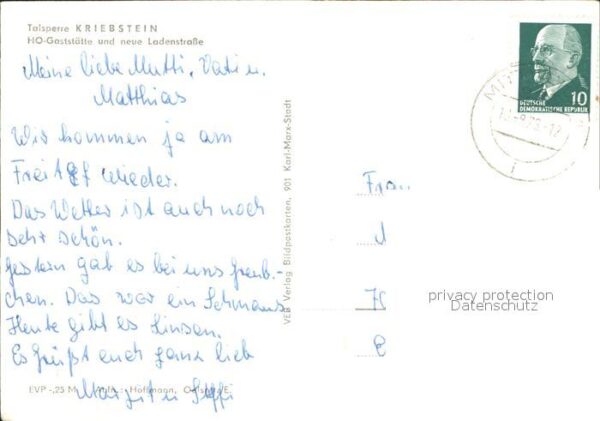 Talsperre KRIEBSTEIN
HO-Gaststätte und neue Ladenstraße
Meine liebe Mutti, Vati u.
Matthias
Wir kommen ja am
Freitag wieder.
Das Wetter ist auch noch
sehr schön.
Gestern gab es bei uns
chen. Das war ein Schmaus
Heute gibt es Linsen.
Es grüßt euch ganz lieb
Margit u Steffi
EVP -,25 M Hoffmann,
VEB Verlag Bildpostkarten, 901 Karl-Marx-Stadt
10
DEUTSCHE
DEMOKRATISCHE REPUBLIK
MITT
Frau
H
privacy protection
Datenschutz